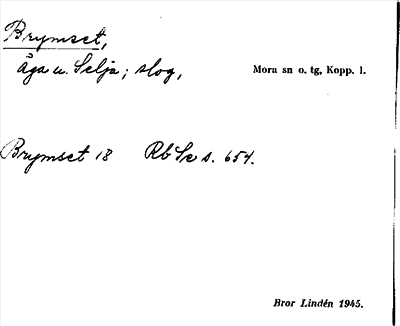 Brymset,
äga u. Selja; slog, Mora sn o. tg, Kopp. l.
Brymset 18 Rb Se s. 654.
Bror Lindén 1945.